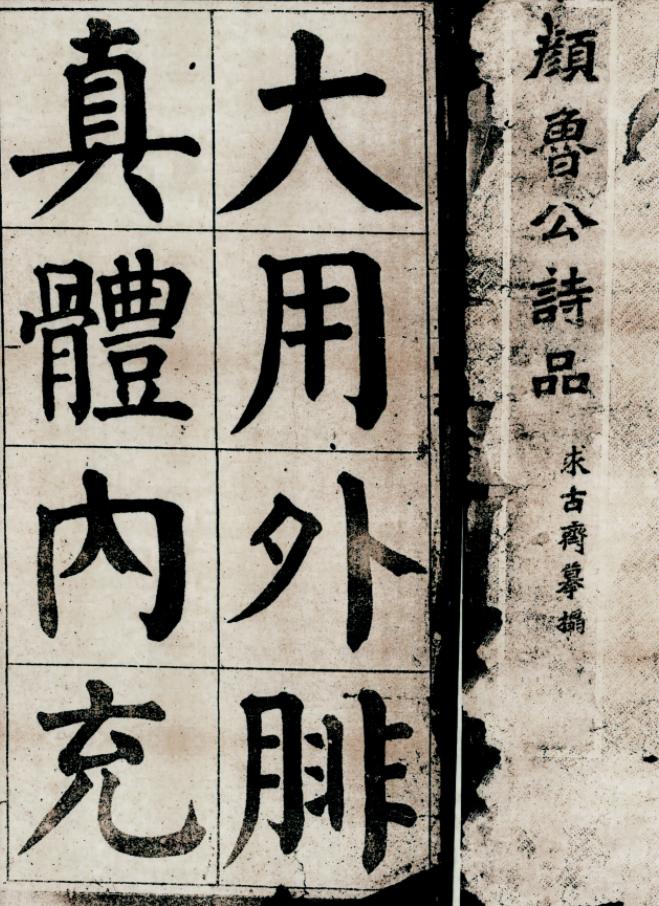 顏魯公詩品
求古齋摹搨
大用外腓
真體內充